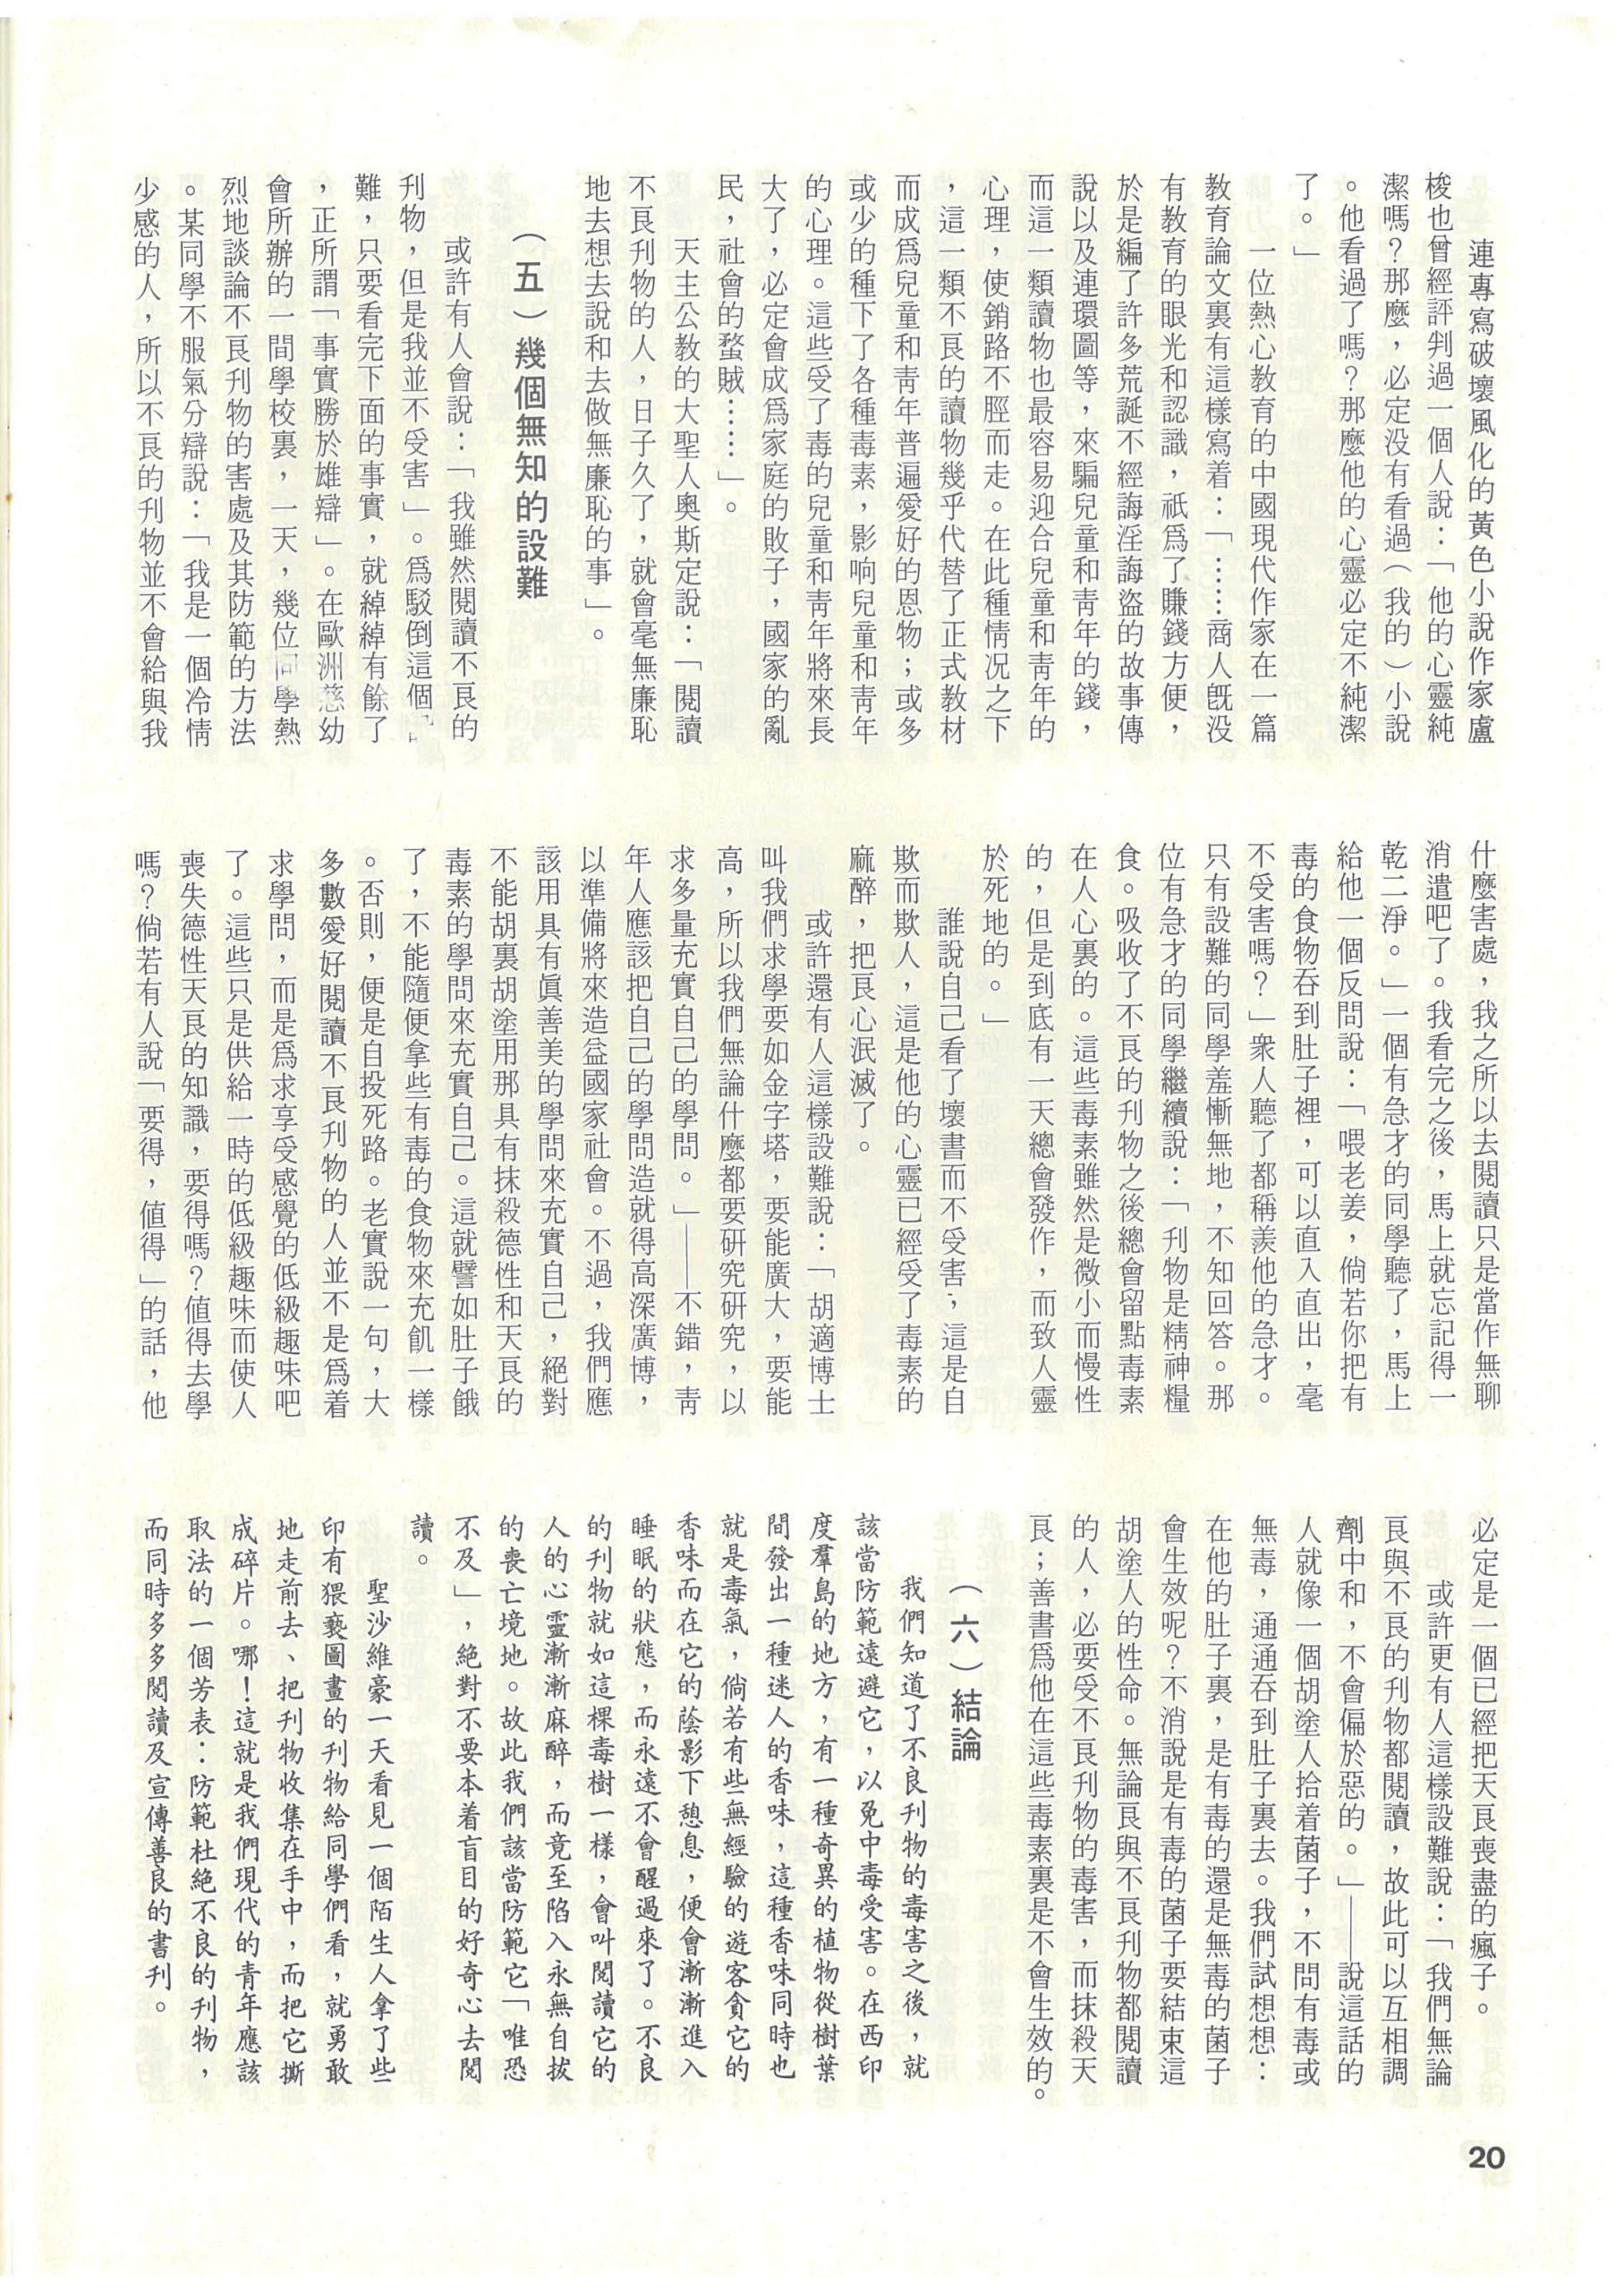 連專寫破壞風化的黃色小說作家盧
梭也曾經評判過一個人說：「他的心靈純
潔嗎？那麼，必定没有看過（我的）小說
。他看過了嗎？那麼他的心靈必定不純潔
了。」
一位熱心教育的中國現代作家在一篇
教育論文裏有這樣寫着：「……商人既没
有教育的眼光和認識，祇爲了賺錢方便，
於是編了許多荒誕不經誨淫誨盜的故事傳
說以及連環圖等，來騙兒童和青年的錢，
而這一類讀物也最容易迎合兒童和青年的
心理，使銷路不脛而走。在此種情況之下
，這一類不良的讀物幾乎代替了正式教材
而成爲兒童和青年普遍愛好的恩物；或多
或少的種下了各種毒素，影响兒童和青年
的心理。這些受了毒的兒童和青年將來長
大了，必定會成爲家庭的敗子，國家的亂
民，社會的蝥賊……」。
天主公教的大聖人奧斯定說：「閱讀
不良刊物的人，日子久了，就會毫無廉恥
地去想去說和去做無廉恥的事」。
（五）幾個無知的設難
或許有人會說：「我雖然閱讀不良的
刊物，但是我並不受害」。爲駁倒這個「
難，只要看完下面的事實，就綽綽有餘了
，正所謂「事實勝於雄辯」。在歐洲慈幼
會所辦的一間學校裏，一天，幾位同學熱
烈地談論不良刊物的害處及其防範的方法
。某同學不服氣分辯說：「我是一個冷情
少感的人，所以不良的刊物並不會給與我
什麼害處，我之所以去閱讀只是當作無聊
消遣吧了。我看完之後，馬上就忘記得一
乾二淨。」一個有急才的同學聽了，馬上
給他一個反問說：「喂老姜，倘若你把有
毒的食物吞到肚子裡，可以直入直出，毫
不受害嗎？」衆人聽了都稱羨他的急才。
只有設難的同學羞慚無地，不知回答。那
位有急才的同學繼續說：「刊物是精神糧
食。吸收了不良的刊物之後總會留點毒素
在人心裏的。這些毒素雖然是微小而慢性
的，但是到底有一天總會發作，而致人靈
於死地的。」
誰說自己看了壞書而不受害，這是自
欺而欺人，這是他的心靈已經受了毒素的
麻醉，把良心泯滅了。
或許還有人這樣設難說：「胡適博士
叫我們求學要如金字塔，要能廣大，要能
高，所以我們無論什麼都要研究研究，以
求多量充實自己的學問。」——不錯，青
年人應該把自己的學問造就得高深廣博，
以準備將來造益國家社會。不過，我們應
該用具有眞善美的學問來充實自己，絕對
不能胡裏胡塗用那具有抹殺德性和天良的
毒素的學問來充實自己。這就譬如肚子餓
了，不能隨便拿些有毒的食物來充飢一樣
。否則，便是自投死路。老實說一句，大
多數愛好閱讀不良刊物的人並不是爲着
求學問，而是爲求享受感覺的低級趣味吧
了。這些只是供給一時的低級趣味而使人
喪失德性天良的知識，要得嗎？值得去學
嗎？倘若有人說「要得，值得」的話，他
必定是一個已經把天良喪盡的瘋子。
或許更有人這樣設難說：「我們無論
良與不良的刊物都閱讀，故此可以互相調
劑中和，不會偏於惡的。」——說這話的
人就像一個胡塗人拾着菌子，不問有毒或
無毒，通通吞到肚子裏去。我們試想想：
在他的肚子裏，是有毒的還是無毒的菌子
會生效呢？不消說是有毒的菌子要結束這
胡塗人的性命。無論良與不良刊物都閱讀
的人，必要受不良刊物的毒害，而抹殺天
良；善書爲他在這些毒素裏是不會生效的。
（六）結論
我們知道了不良刊物的毒害之後，就
該當防範遠避它，以免中毒受害。在西印
度羣島的地方，有一種奇異的植物從樹葉
間發出一種迷人的香味，這種香味同時也
就是毒氣，倘若有些無經驗的遊客貪它的
香味而在它的蔭影下憩息，便會漸漸進入
睡眠的狀態，而永遠不會醒過來了。不良
的刊物就如這棵毒樹一樣，會叫閱讀它的
人的心靈漸漸麻醉，而竟至陷入永無自拔
的喪亡境地。故此我們該當防範它「唯恐
不及」，絕對不要本着盲目的好奇心去閱
讀。
聖沙維豪一天看見一個陌生人拿了些
印有猥褻圖畫的刊物給同學們看，就勇敢
地走前去、把刊物收集在手中，而把它撕
成碎片。哪！這就是我們現代的青年應該
取法的一個芳表：防範杜絕不良的刊物，
而同時多多閱讀及宣傳善良的書刊。
20